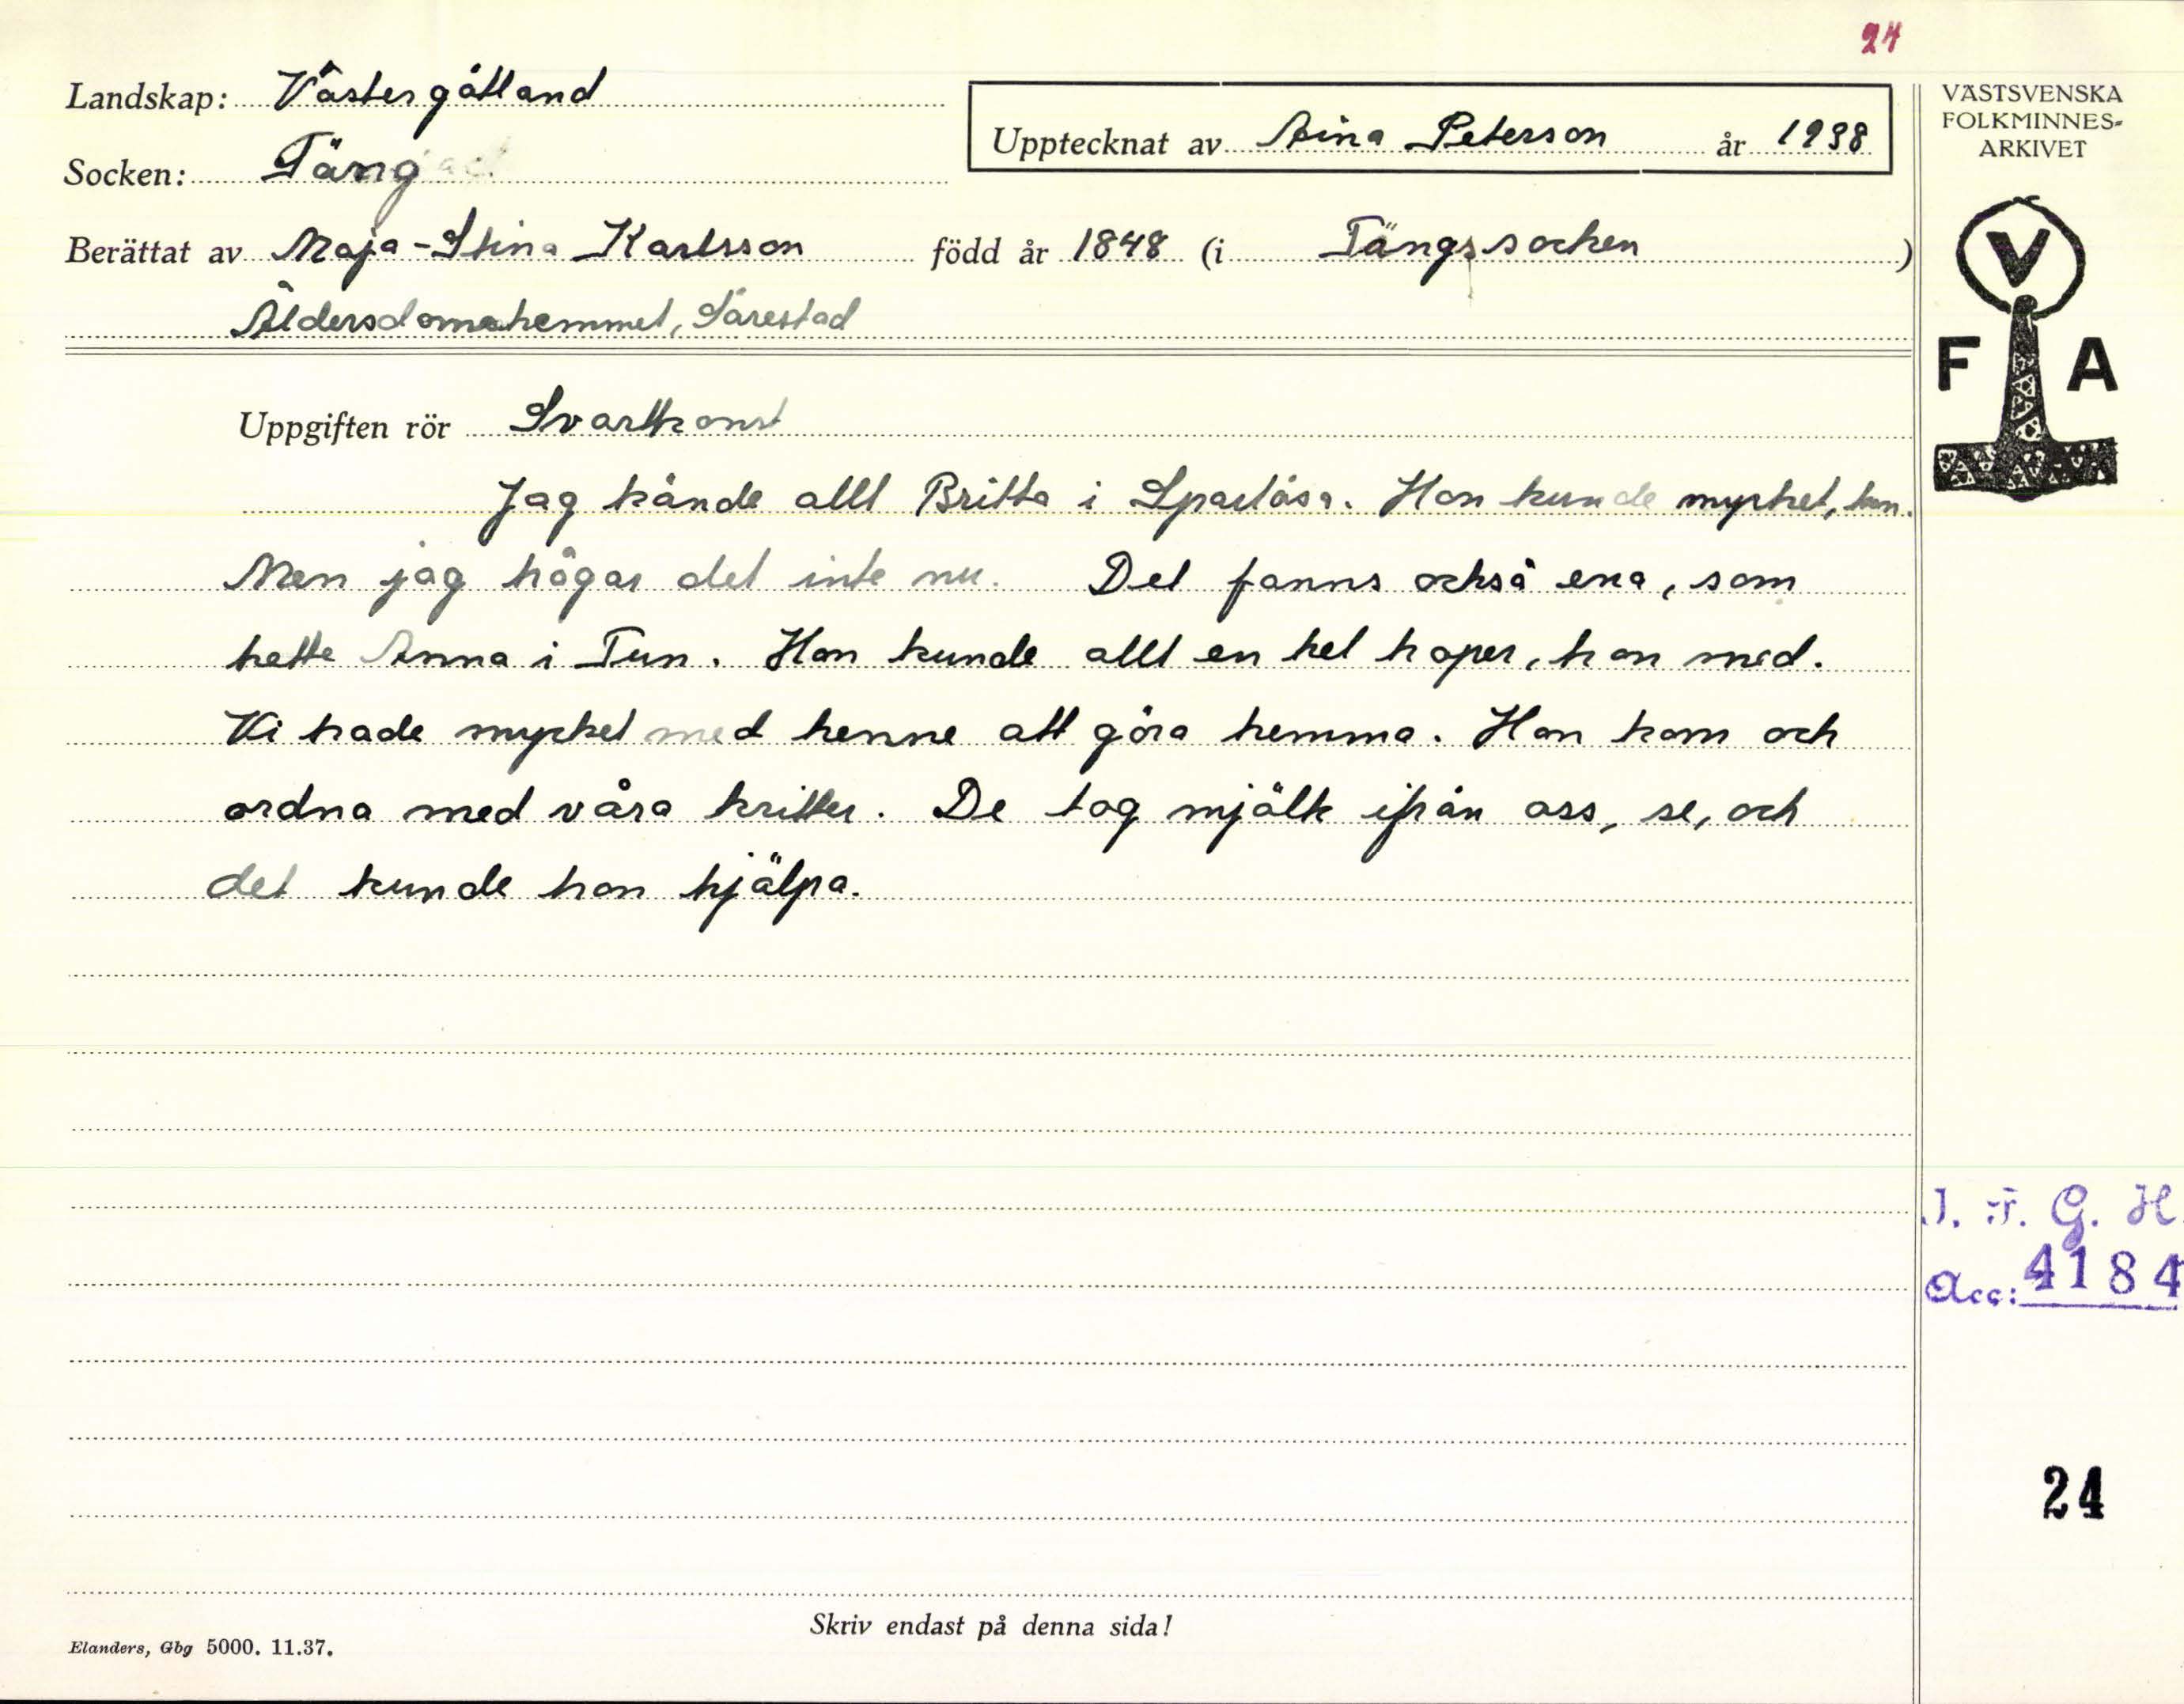 24
Landskap: Västergötland
Upptecknat av Aina Peterson år 1938
VÄSTSVENSKA
FOLKMINNES-
ARKIVET
Socken: Täng
Berättat av Maja-Stina Karlsson född år 1848 (i Tängs socken)
Ålderdomshemmet, Särestad
V
F A
Uppgiften rör Svartkonst
Jag kände allt Britta i Sparlösa. Hon kunde mycket, hon.
Men jag högar det inte nu. Det fanns också ena, som
hette Anna i Tun. Hon kunde allt en hel hoper, hon med.
Vi hade mycket med henne att göra hemma. Hon kom och
ordna med våra kritter. De tog mjölk ifrån oss, se, och
det kunde hon hjälpa.
I. F. G. H
Acc: 4184
24
Skriv endast på denna sida!
Elanders, Gbg 5000. 11.37.